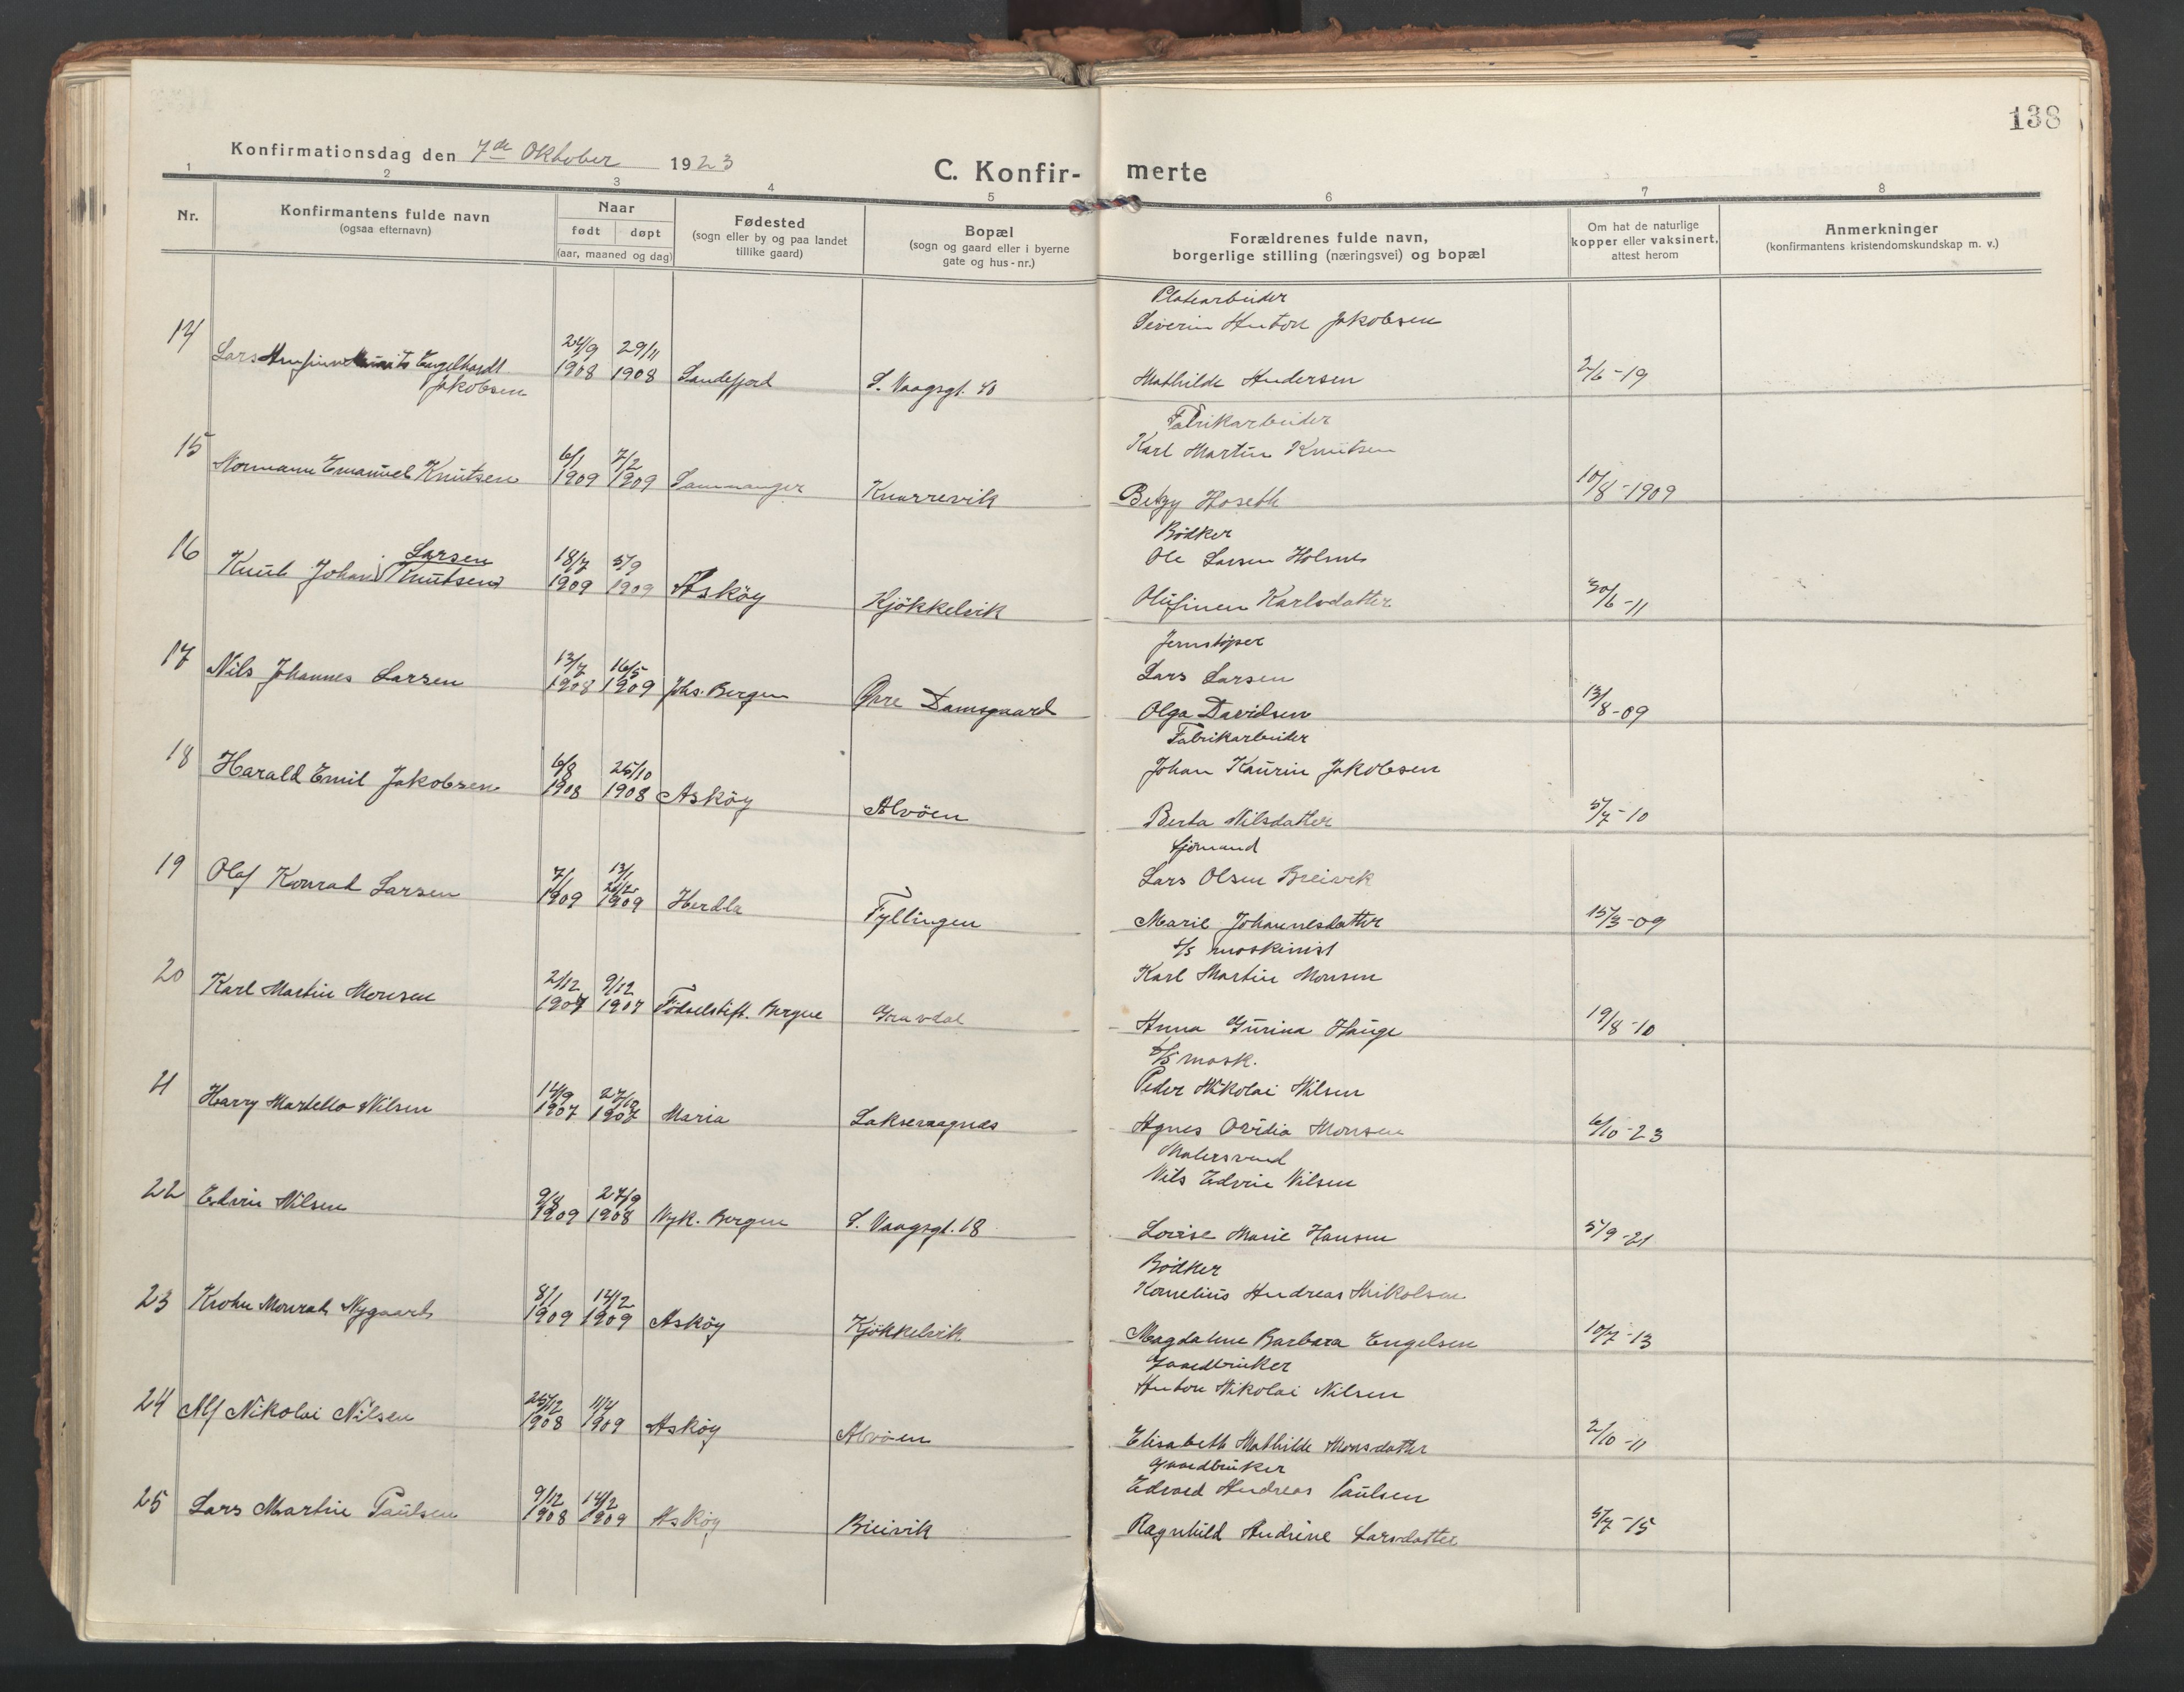 138
Konfirmationsdag den 7de Oktober 1923
C. Konfir- merte
1 2 3 4 5 6 7 8
Nr.
Konfirmantens fulde navn
(ogsaa efternavn)
Naar
født døpt
(aar, maaned og dag)
Fødested
(sogn eller by og paa landet
tillike gaard)
Bopæl
(sogn og gaard eller i byerne
gate og hus-nr.)
Forældrenes fulde navn,
borgerlige stilling (næringsvei) og bopæl
Om hat de naturlige
kopper eller vaksinert,
attest herom
Anmerkninger
(konfirmantens kristendomskundskap m. v.)
Platearbeider
Severin Anton Jakobsen
14 Lars Engelhardt 24/9 29/11
Jakobsen 1908 1908 Sandefjord S. Vaagsgt. 40 Mathilde Andersen 2/6-19
Fabrikarbeider
Karl Martin Knutsen
15 Normann Emanuel Knutsen 6/1 1909 7/2 1909 Samnanger Knarrevik Betzy Hoseth 10/8-1909
Bödker
Ole Larsen Holmes
Larsen
16 Knut Johan (Knutsen) 18/7 1909 5/9 1909 Asköy Kjökkelvik Olufinen Karlsdatter 30/6-11
Jernstöper
Lars Larsen
17 Nils Johannes Larsen 13/7 1908 16/5 1909 Johs. Bergen Övre Damsgaard Olga Davidsen 13/8-09
Fabrikarbeider
Johan Kaurin Jakobsen
18 Harald Emil Jakobsen 6/8 1908 25/10 1908 Asköy Alvöen Berta Nilsdatter 5/7-10
Sjömand
Lars Olsen Breivik
19 Olaf Konrad Larsen 7/1 1909 13/1 21/2 1909 Herdla Fyllingen Marie Johannesdatter 15/3-09
s/s maskinist
Karl Martin Monsen
20 Karl Martin Monsen 2/12 1907 9/12 1907 Födselstift. Bergen Gravdal Anna Gurina Hauge 19/8-10
s/s mask.
Peder Nikolai Nilsen
21 Harry Martello Nilsen 14/9 1907 27/10 1907 Maria Laksevaagnæs Agnes Ovidia Monsen 6/10-23
Malersvend
Nils Edvin Nilsen
22 Edvin Nilsen 9/8 1909 27/9 1908 Nyk. Bergen S. Vaagsgt. 18 Lovise Marie Hansen 5/9-21
Bödker
Kornelius Andreas Mikalsen
23 Krohn Monrad Nygaard 8/1 1909 14/2 1909 Asköy Kjökkelvik Magdalene Barbara Engelsen 10/7-13
Gaardbruker
Anton Nikolai Nilsen
24 Alf Nikolai Nilsen 25/12 1908 11/4 1909 Asköy Alvöen Elisabeth Mathilde Monsdatter 2/10-11
Gaardbruker
Edvard Andreas Paulsen
25 Lars Martin Paulsen 9/12 1908 14/2 1909 Asköy Breivik Ragnhild Andrine Larsdatter 5/7-15